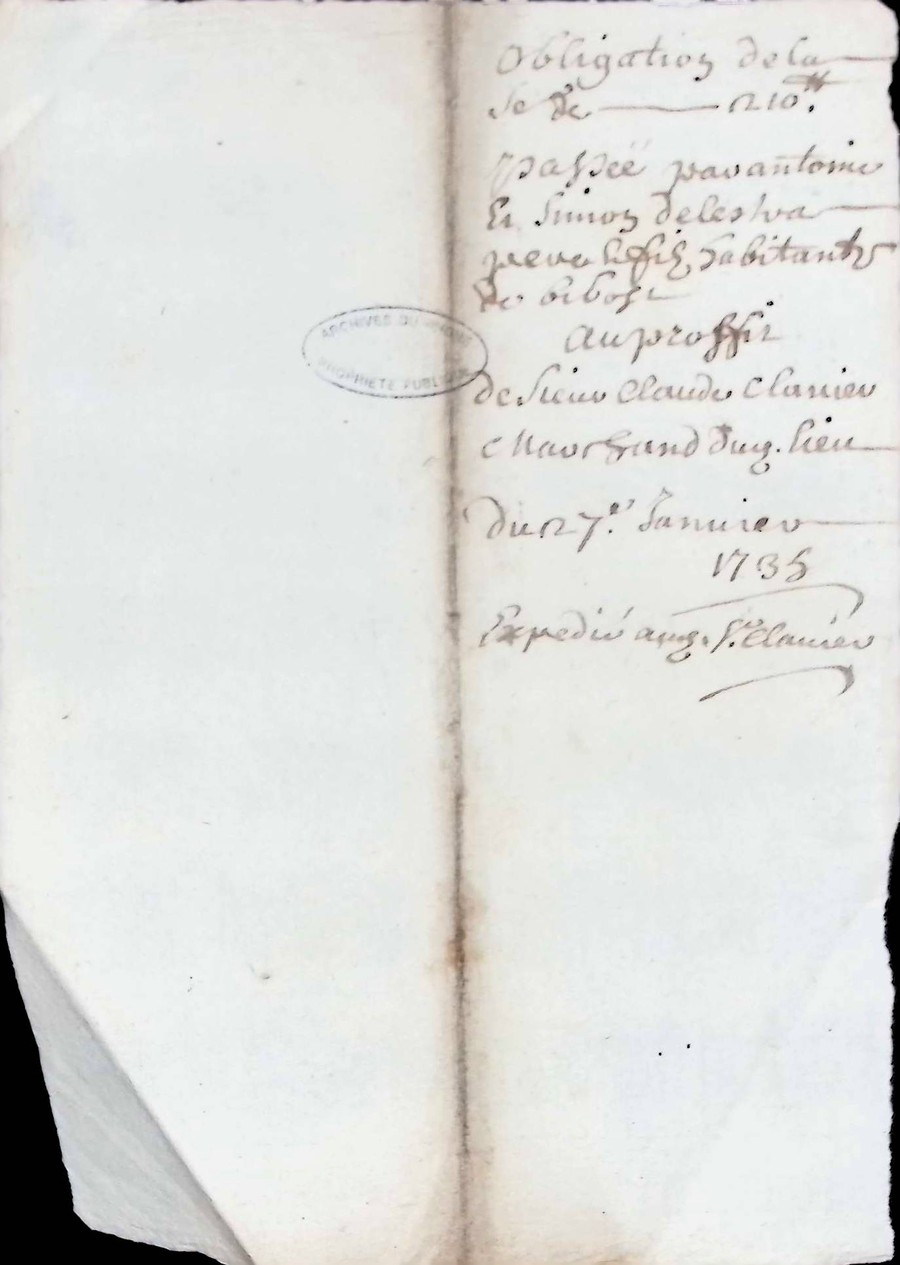 Obligation de la
Se de 210ᵗᵗ.
passée par antoine
Et Simon delestra
pere & fils habitants
de bibost
ARCHIVES DU RHONE
PROPRIETE PUBLIQUE
au proffit
de Sieur Claude Clanier
Marchand dud. lieu
Du 27e. Janvier
1735
Expedié aud. Sr. Clanier